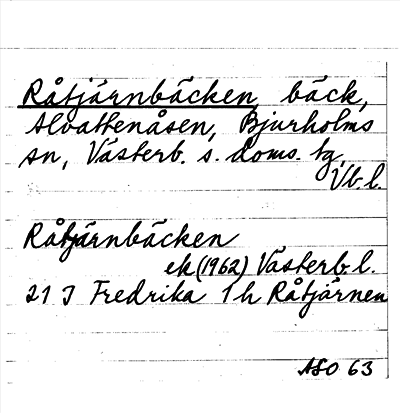 Råtjärnbäcken, bäck,
Alvattenåsen, Bjurholms
sn, Västerb. s. doms. tg,
Vb. l.
Råtjärnbäcken
ek (1962) Västerb. l.
21 J Fredrika 1 h Råtjärnen
ASO 63